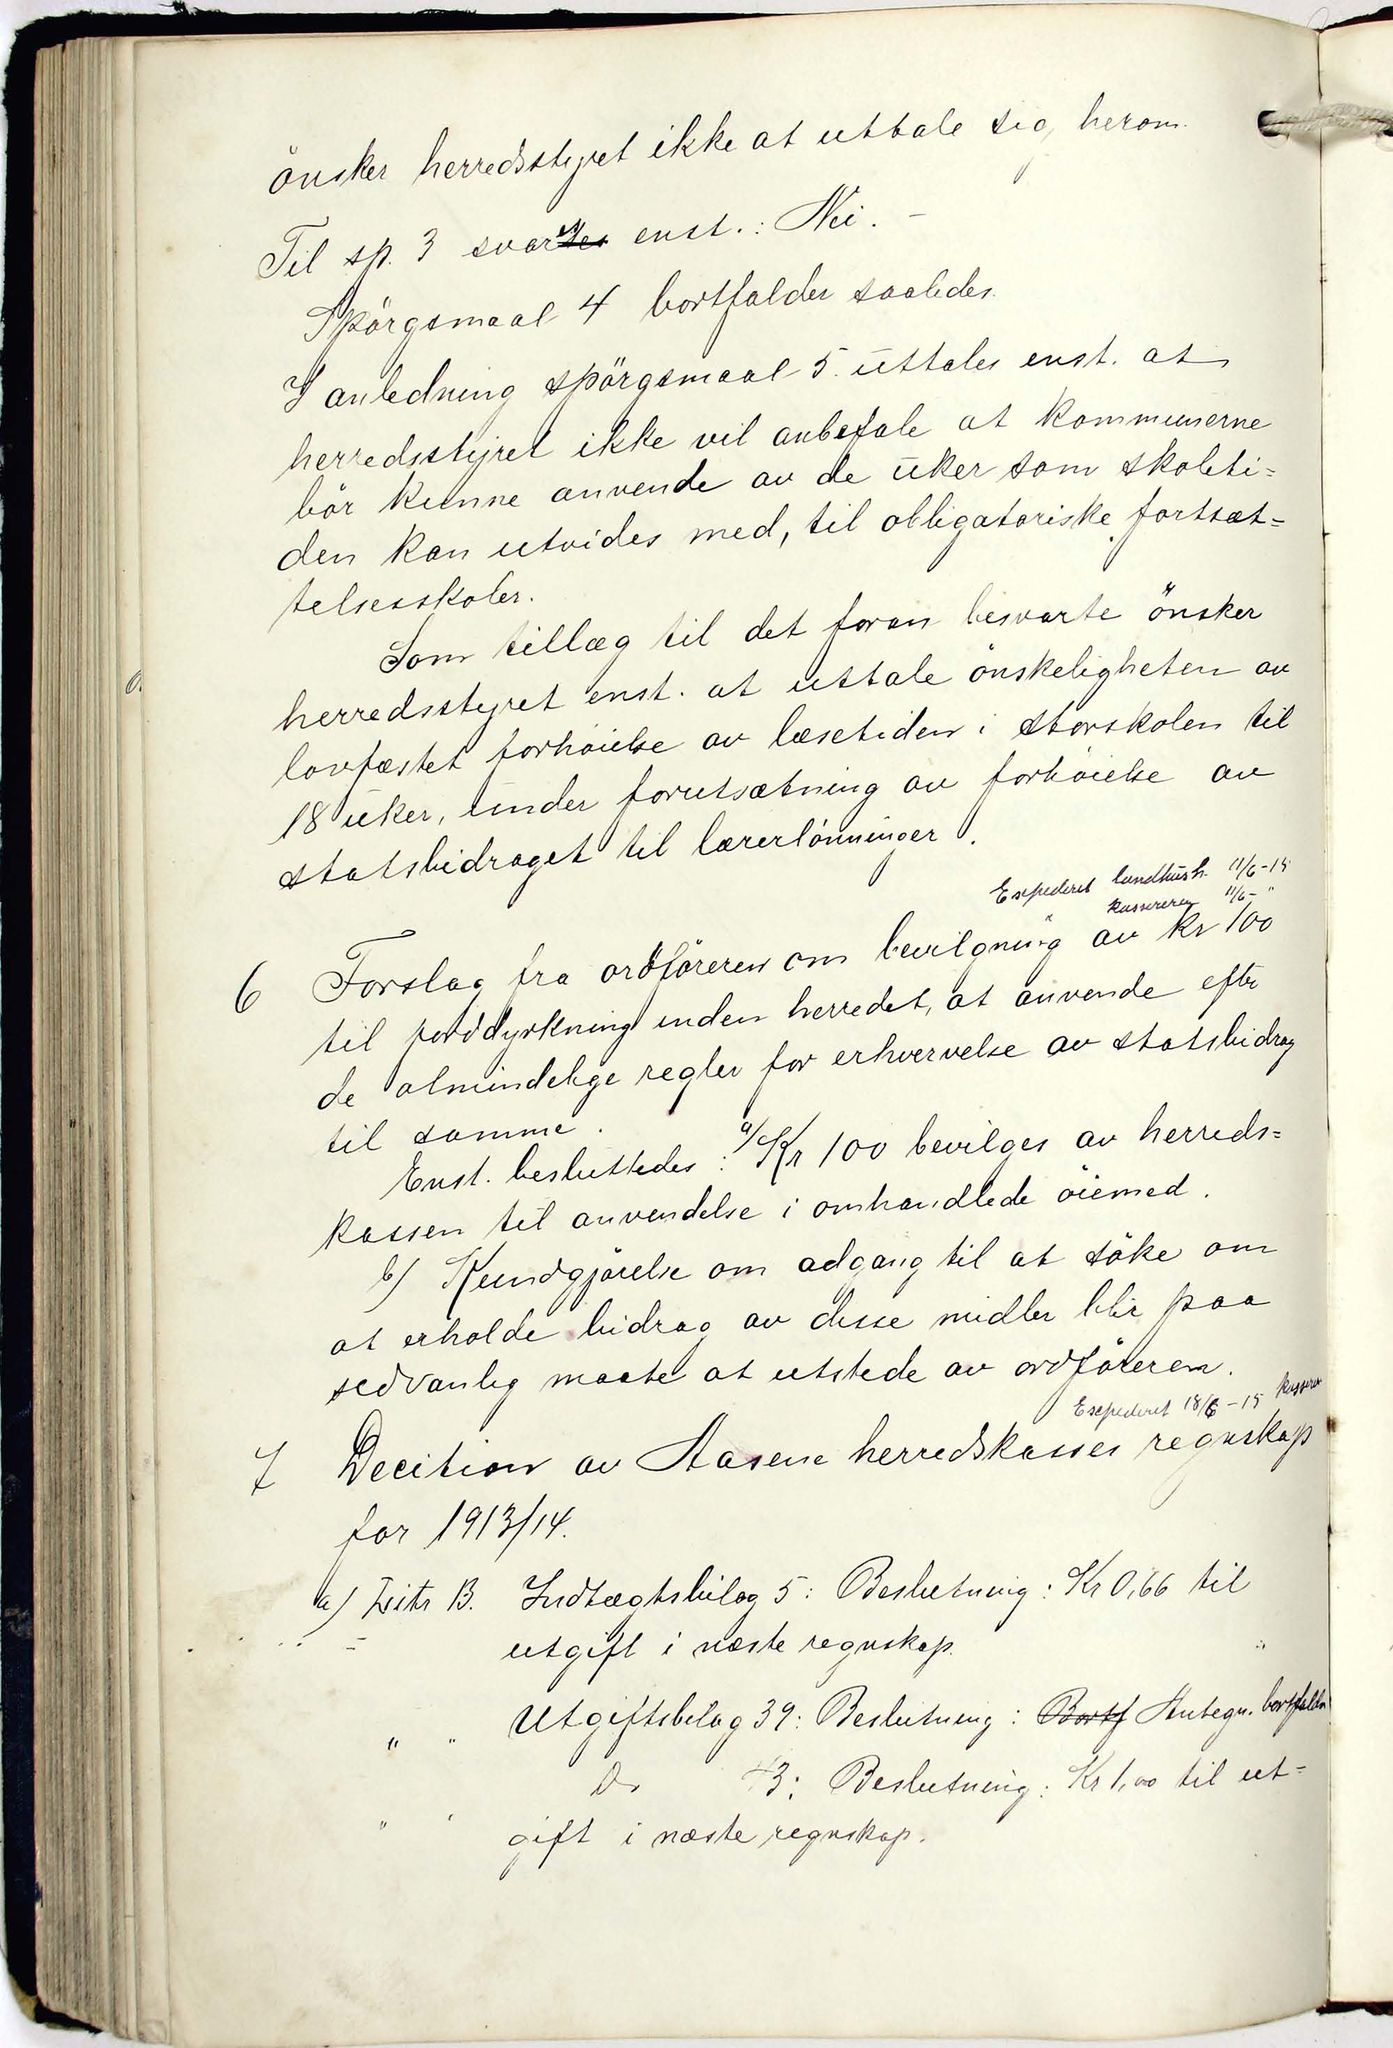 önsker herredsstyret ikke at uttale sig herom.
Til sp. 3 svartes enst.: Nei. –
Spörgsmaal 4 bortfalder saaledes.
I anledning spörgsmaal 5. uttales enst. at
herredsstyret ikke vil anbefale at kommunerne
bör kunne anvende av de uker som skoleti=
den kan utvides med, til obligatoriske fortsæt=
telsesskoler.
Som tillæg til det foran besvarte önsker
herredsstyret enst. at uttale önskeligheten av
lovfæstet forhöielse av læsetiden i storskolen til
18 uker, under forutsætning av forhöielse av
statsbidraget til lærerlönninger.
Expederet landhush. 11/6-15
kassereren 11/6- "
6 Forslag fra ordföreren om bevilgning av kr 100
til jorddyrkning inden herredet, at anvende efter
de almindelige regler for erhvervelse av statsbidrag
til samme.
Enst. besluttedes: a/ Kr 100 bevilges av herreds=
kassen til anvendelse i omhandlede öiemed.
b/ Kundgjörelse om adgang til at söke om
at erholde bidrag av disse midler blir paa
sedvanlig maate at utstede av ordföreren.
Expederet 18/6-15 kasserer
7 Decition av Aasene herredskasses regnskap
for 1913/14.
a/ Litr B. Indtægtsbilag 5: Beslutning: Kr 0,66 til
utgift i næste regnskap.
" " Utgiftsbilag 39: Beslutning: Bortf Antegn. bortfalder
" " Do 43: Beslutning: Kr 1,00 til ut=
gift i næste regnskap.